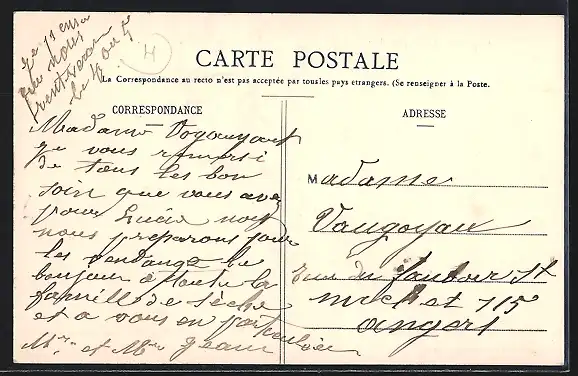 je pense
que nous
le 4 ou 5
H
CARTE POSTALE
La Correspondance au recto n'est pas acceptée par tous les pays étrangers. (Se renseigner à la Poste.
CORRESPONDANCE
ADRESSE
Madame Vogouyant
ge vous remersi
de tous les bon
soin que vous avez
pour Lucie nous
nous preparons pour
les vendange le
bonjour a toute la
famille de
et a vous en particulier
Mr et Mme Jean
Madame
Vaugoyau
rue du faubour St
michel 115
angers